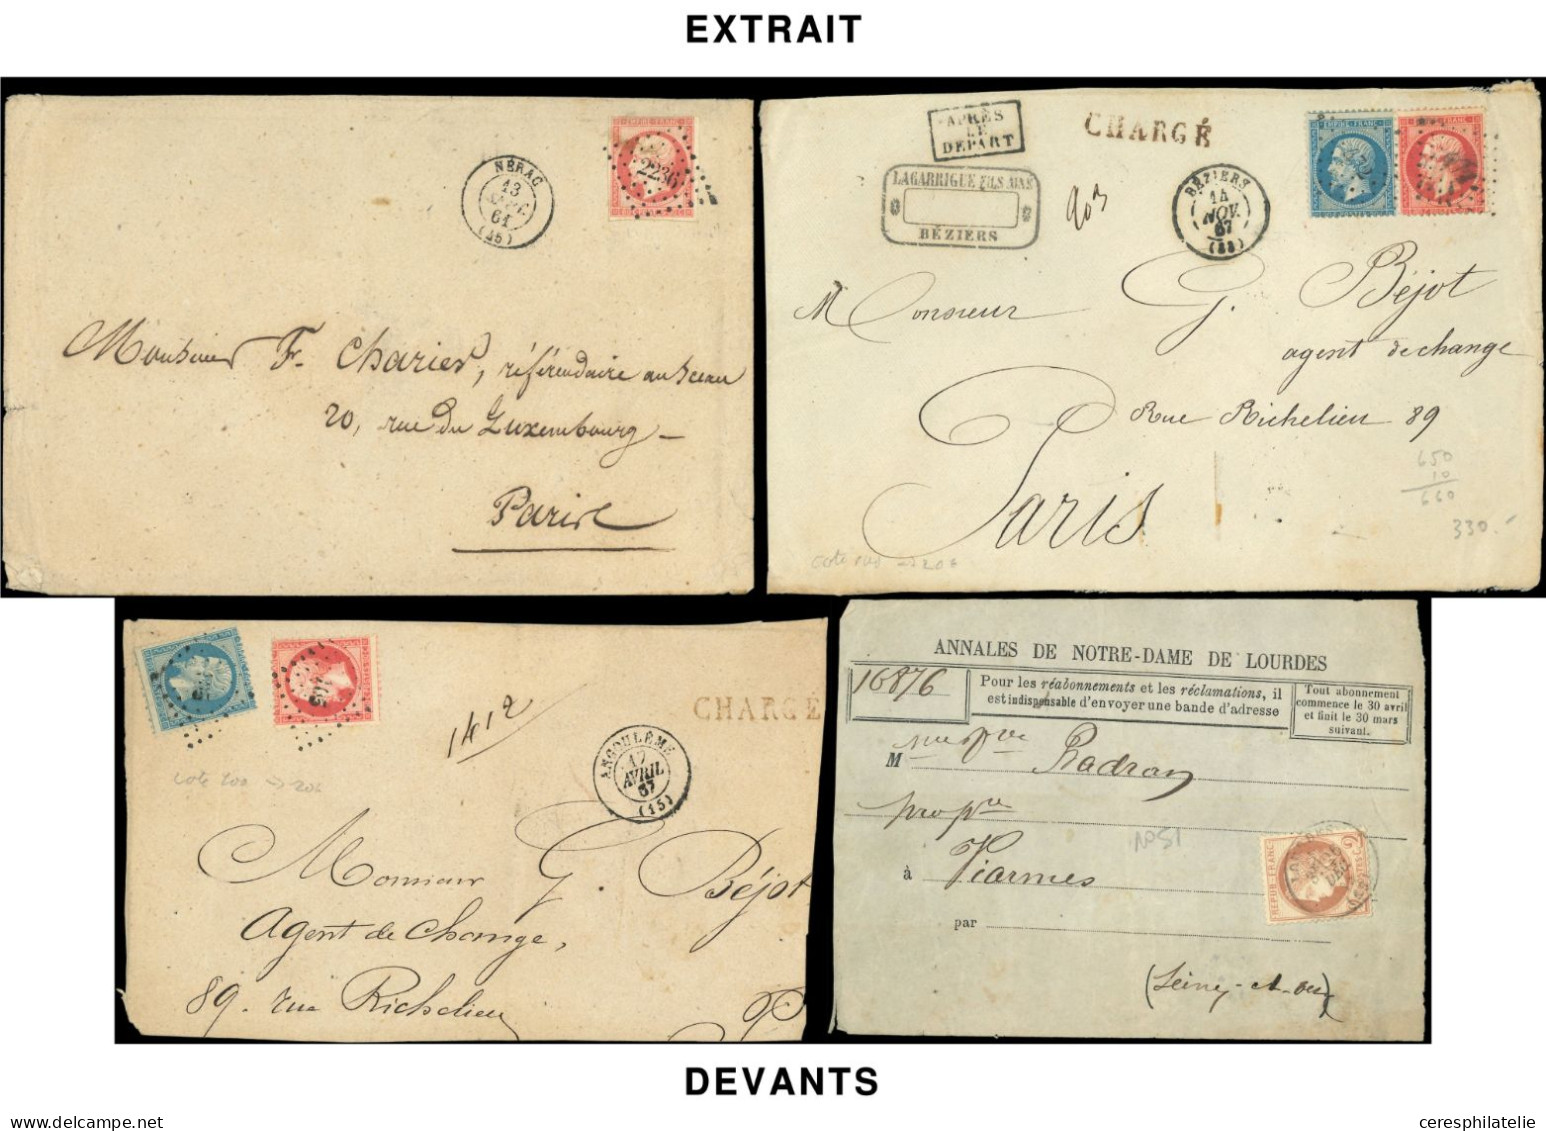 EXTRAIT
NÉRAC
13
61
EMPIRE FRANC
2236
Monsieur Fr. Charier, référendaire au sceau
20, rue du Luxembourg
Paris
APRÈS
LE
DÉPART
CHARGÉ
LAGARRIGUE FILS AINÉ
BÉZIERS
903
BÉZIERS
14
NOV.
67
EMPIRE FRANC
Monsieur G. Béjot
agent de change
Rue Richelieu 89
Paris
650
10
660
330.-
1412
CHARGÉ
ANGOULÊME
17
AVRIL
67
(15)
cote 200 → 20€
Monsieur G. Béjot
Agent de Change,
89. rue Richelieu
P
ANNALES DE NOTRE-DAME DE LOURDES
16876
Pour les réabonnements et les réclamations, il
est indispensable d'envoyer une bande d'adresse
Tout abonnement
commence le 30 avril
et finit le 30 mars
suivant.
M Radran
prop.re
N°51
à Viarmes
REPUB FRANC
par
(Seine-et-Oise)
DEVANTS
www.delcampe.net
ceresphilatelie